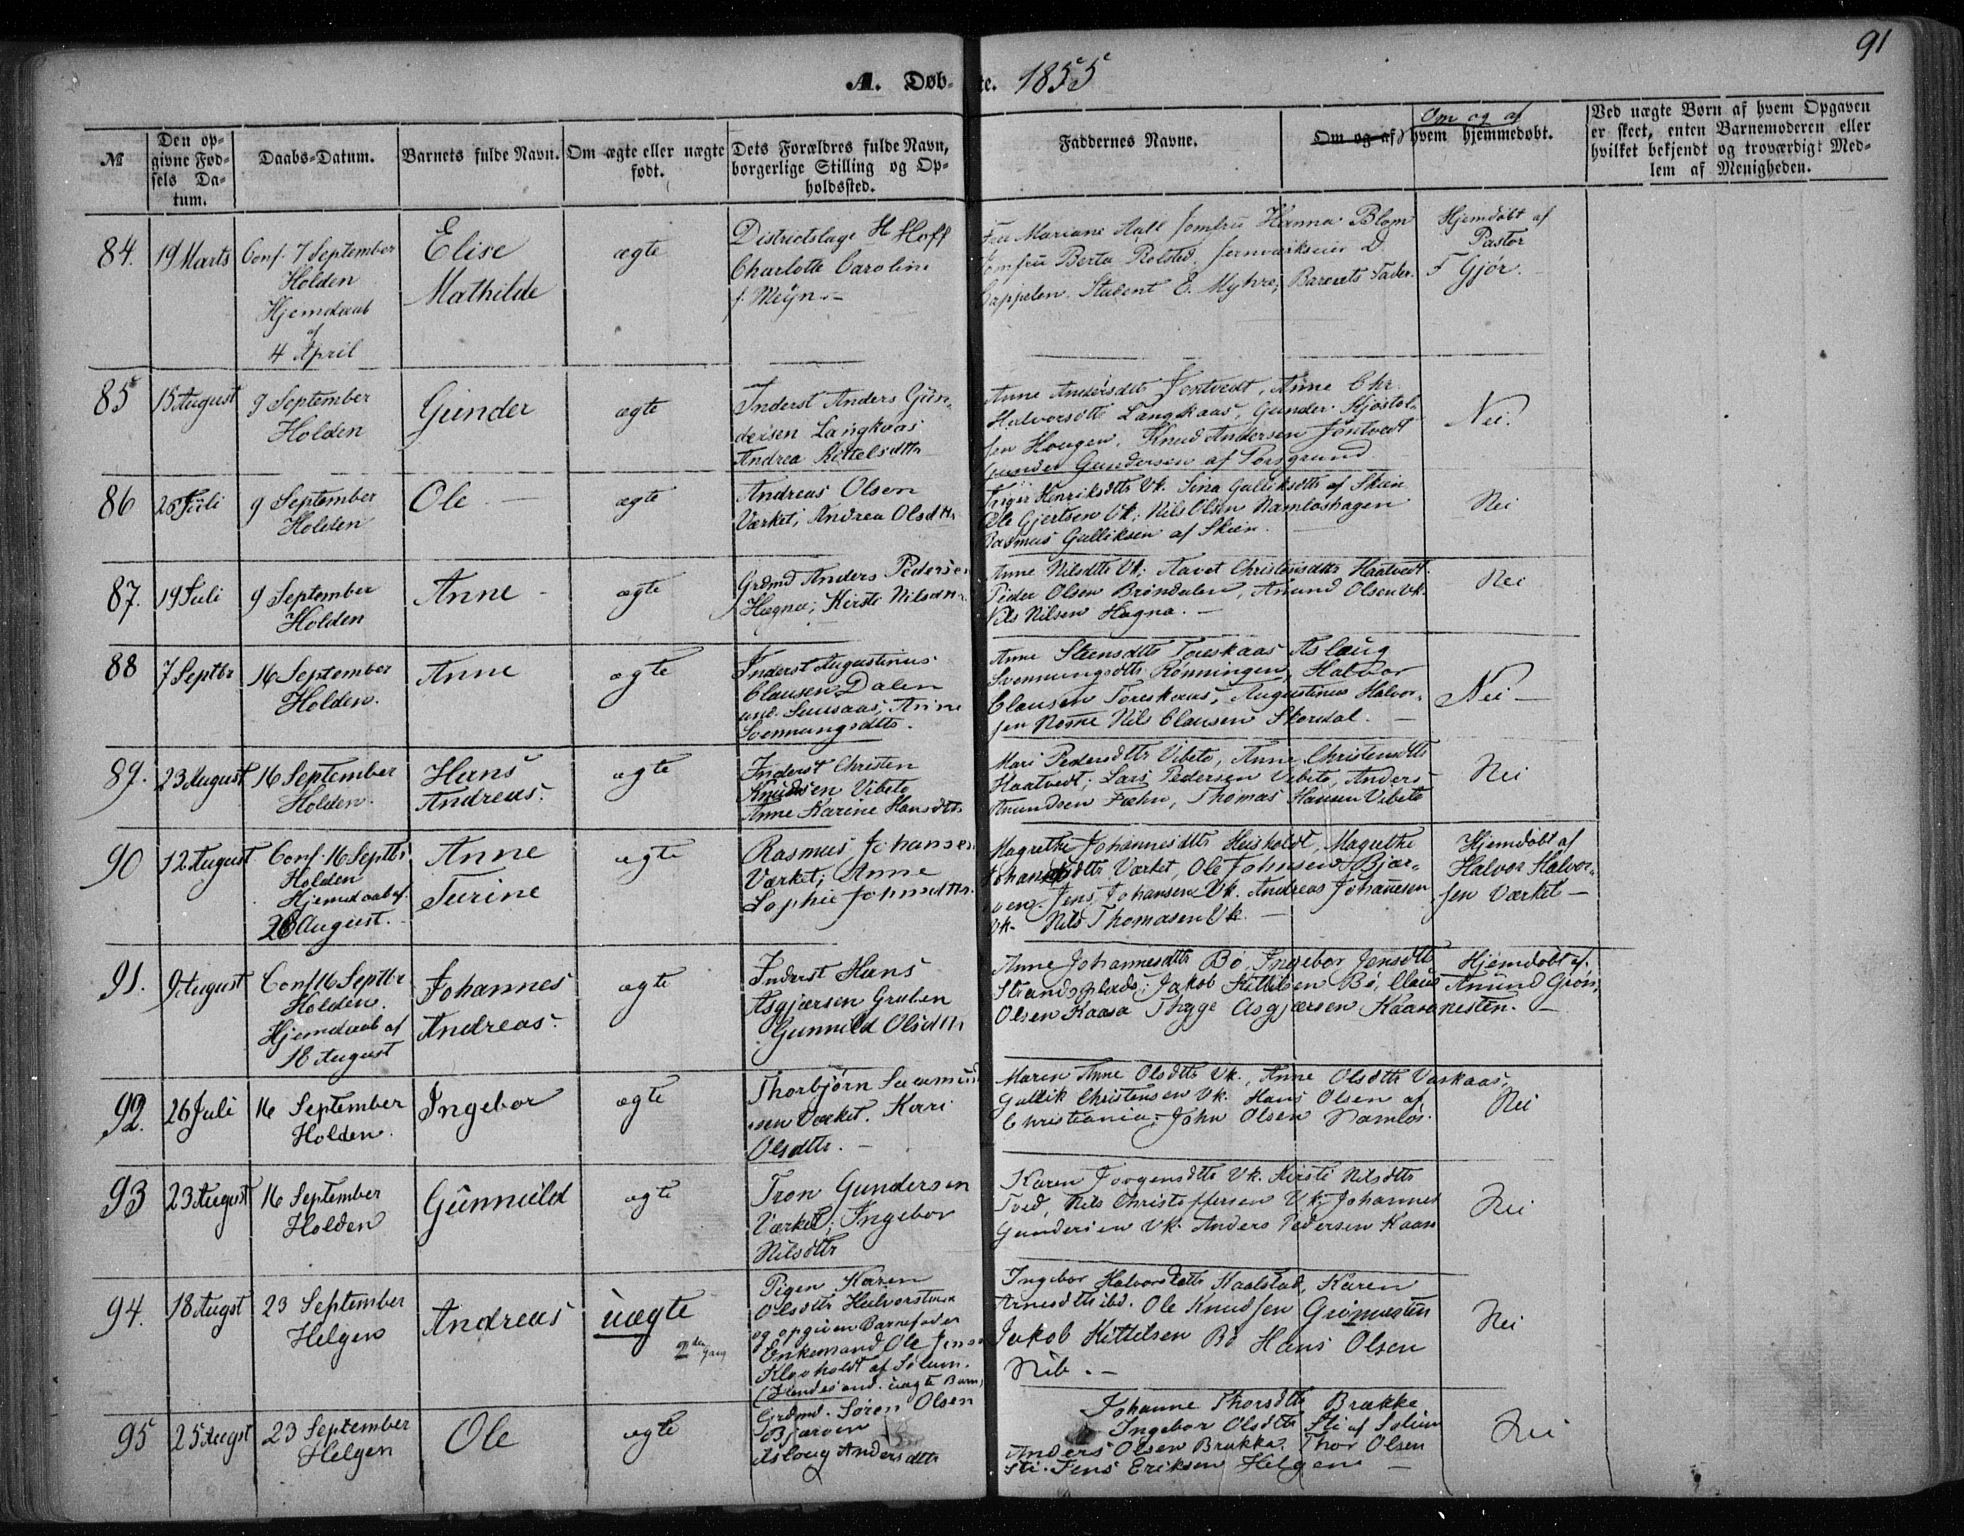 91
A. Døb- te. 1855
№
Den op-
givne Fød-
sels Da-
tum.
Daabs-Datum.
Barnets fulde Navn.
Om ægte eller uægte
født.
Dets Forældres fulde Navn,
borgerlige Stilling og Op-
holdssted.
Faddernes Navne.
Om og af
Om og af) hvem hjemmedøbt.
Ved uægte Børn af hvem Opgaven
er skeet, enten Barnemoderen eller
hvilket bekjendt og troværdigt Med-
lem af Menigheden.
84. 19 Marts
Conf. 7 September
Holden
Hjemdaab
af
4 April
Elise
Mathilde
ægte
Districtslæge H Hoff
Charlotte Caroline
f. Meÿn. -
Fru Mariane Aall Jomfru Hanna Blom
Jomfru Berta Rolsted, Jernværkseier D.
Cappelen. Student E. Myhre, Barnets Fader.
Hjemdøbt af
Pastor
F Gjør.
85 15 August
9 September
Holden
Gunder
ægte
Inderst Anders Gun-
dersen Langkaas
Andrea Kittelsdttr
Anne Andersdttr Jontvedt, Anne Chr.
Halvorsdttr Langkaas, Gunder Kjøstol-
sen Hougen, Knud Andersen Jontvedt
Gunder Gundersen af Porsgrund
Nei.
86 26 Juli
9 September
Holden
Ole
ægte
Andreas Olsen
Værket; Andrea Olsdttr
Henriksdttr Vk. Sina Gulliksdttr af Skien
Ole Gjertsen Vk; Nils Olsen Namloshagen
Rasmus Gulliksen af Skien.
Nei
87. 19 Juli
9 September
Holden
Anne -
ægte
Grdmd Anders Pedersen
Hagna; Kirsti Nilsdtr
Anne Nilsdttr Vk; Aavet Christensdttr Haatvedt
Peder Olsen Brøndalen, Amund Olsen Vk
Nils Nilsen Hagna. -
Nei
88 7 Septbr
16 September
Holden.
Anne
ægte
Inderst Augustinus
Clausen Dalen
und. Anne
Svennungsdttr.
Anne Steensdttr Toreskaas Aslaug
Svennungsdttr Rønningen, Halvor
Clausen Toreskaas, Augustinus Halvor-
sen Nome Nils Clausen Skordal. -
Nei -
89. 23 August
16 September
Holden.
Hans
Andreas.
ægte
Inderst Christen
Knudsen Vibeto
Anne Karine Hansdttr
Mari Pedersdttr Vibeto, Anne Christensdttr
Haatvedt, Lars Pedersen Vibeto, Anders
Amundsen Fæhn, Thomas Hansen Vibeto
Nei
90 12 August
Conf. 16 Septbr
Holden
Hjemdaab af.
28 August.
Anne
Turine
ægte
Rasmus Johansen
Værket; Anne
Sophie Johnsdttr
Magrethe Johannesdttr Heisholdt, Magrethe
Johansdttr Værket, Ole Johnsen Bjær-
ven. Jens Johansen Vk. Andreas Johansen
Vk. Nils Thomasen Vk. -
Hjemdøbt af
Halvor Halvor-
sen Værket -
91. 9 August
Conf 16 Septbr
Holden.
Hjemdaab af
18 August
Johannes
Andreas.
ægte
Inderst Hans
Asgjærsen Gruben
Gunnild Olsdttr
Anne Johannesdttr Bø Ingebor Jensdttr
Strandsplads; Jakob Kittilsen Bø, Claus
Olsen Kaasa Thyge Asgjærsen Kaasa
Hjemdøbt af.
Amund Grøn-
nesten. -
92. 26 Juli
16 September
Holden.
Ingebor
ægte
Thorbjørn Saamund
sen Værket. Kari
Olsdttr. -
Maren Anne Olsdttr Vk., Anne Olsdttr Vaskaas,
Gullik Christensen Vk. Hans Olsen af
Christiania; John Olsen Namløs.
Nei
93 23 August
16 September
Holden
Gunnuld
ægte
Tron Gundersen
Værket; Ingebor
Nilsdttr
Karen Jørgensdttr Vk. Kirsti Nilsdttr
Tved, Nils Christoffersen Vk, Johannes
Gundersen Vk. Anders Pedersen Kaasa
Nei
94. 18 Augst
23 September
Helgen
Andreas
uægte
2den Gang
Pigen Karen
Olsdttr Halvors
og opgiven Barnefader
Enkemand Ole Jens
Klovholdt af Solum.
(Hendes and. uægte Barn)
Ingebor Halvorsdttr Kaalstad, Karen
Arnesdttr ibd. Ole Knudsen Grønnesten
Jakob Kittilsen Bø Hans Olsen
Nei
95 25 Augst
23 September
Helgen
Ole
ægte
Grdmd. Søren Olsen
Bjærven
Asloug Andersdttr
Johanne Thorsdttr Brække
Ingebor Olsdttr Sti af Solum
Anders Olsen Brække. Thor Olsen
Sti. Jens Eriksen Helgen -
Nei